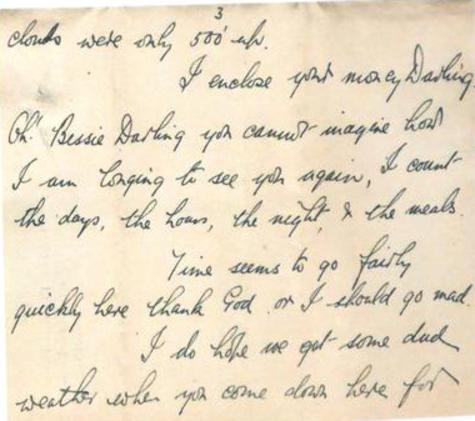 3
clouds were only 500' up.
I enclose your money Darling.
Oh! Bessie Darling you cannot imagine how
I am longing to see you again, I count
the days, the hours, the night, & the meals.
Time seems to go fairly
quickly here thank God or I should go mad
I do hope we get some dud
weather when you come down here for